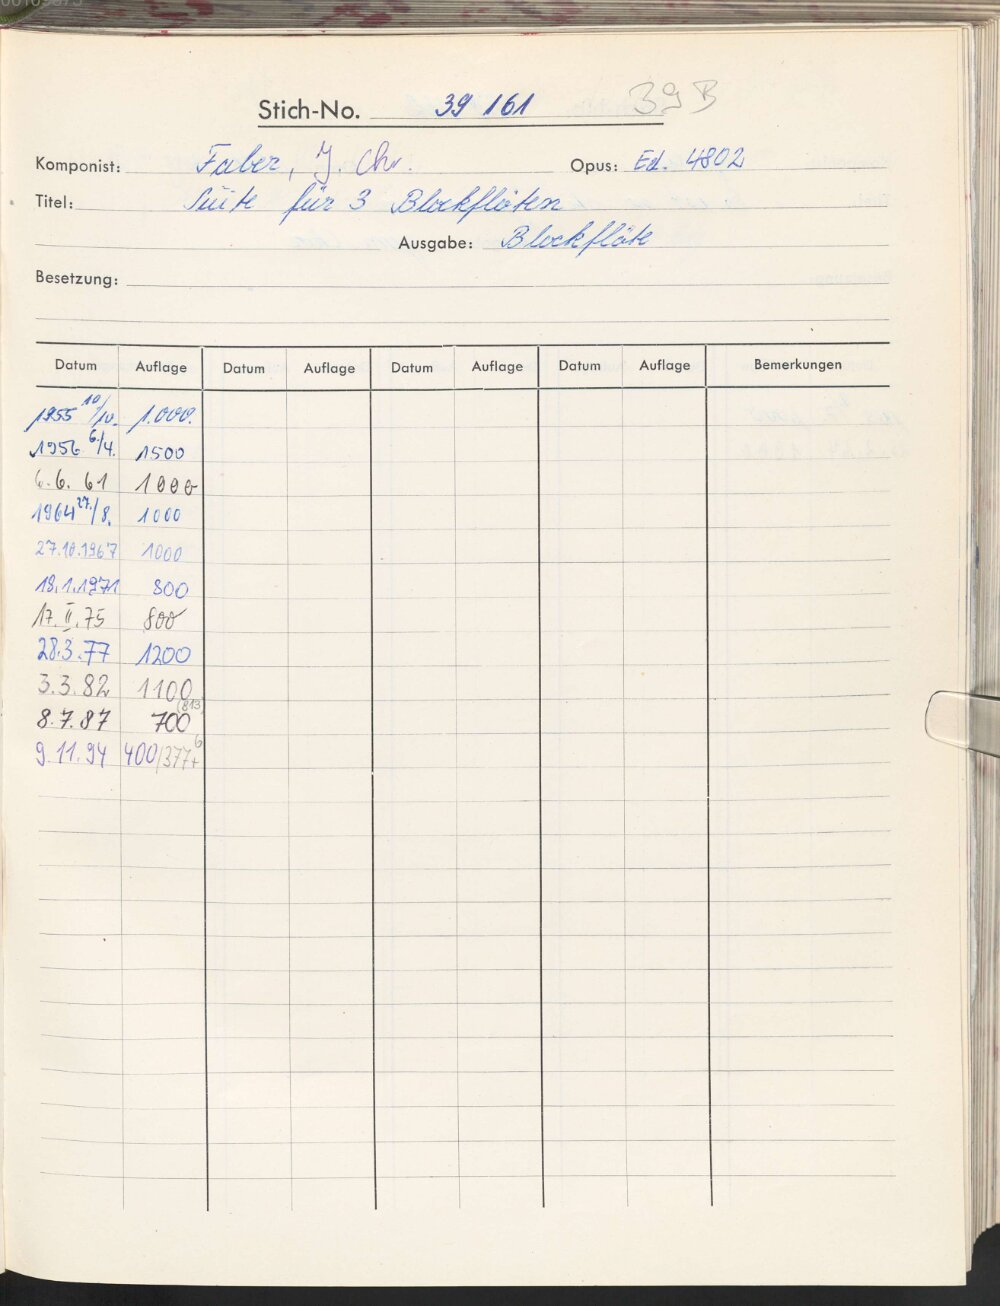 Stich-No. 39 161 39 B
Komponist: Faber, J. Chr. Opus: Ed. 4802
Titel: Suite für 3 Blockflöten
Ausgabe: Blockflöte
Besetzung:
Datum Auflage Datum Auflage Datum Auflage Datum Auflage Bemerkungen
1955 10/10. 1.000.
1956 6./4. 1500
6.6.61 1000
1964 27./8. 1000
27.10.1967 1000
18.1.1971 800
17.II.75 800
28.3.77 1200
3.3.82 1100
8.7.87 700 (813)
9.11.94 400/377+6